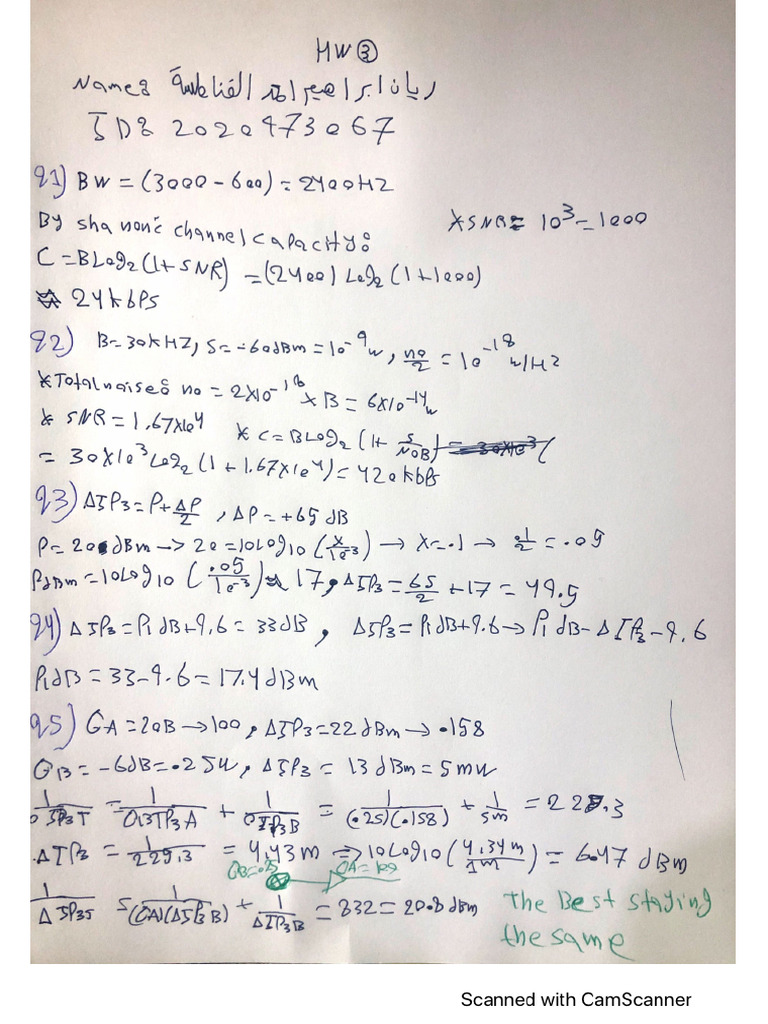 HW ③
Name: ريان ابراهيم احمد
ID: 2020473067
Q1) BW = (3000 - 600) = 2400HZ
By shanon's channel capacity:
* SNR = 10³ = 1000
C = BLog₂(1 + SNR) = (2400) Log₂ (1+1000)
≈ 24kbps
Q2) B = 30kHZ, S = -60dBm = 10⁻⁹w, no/2 = 10⁻¹⁸ w/HZ
* Total noise: no = 2x10⁻¹⁸ x B = 6x10⁻¹⁴w
* SNR = 1.67x10⁴ * C = BLog₂ (1+ S/NoB)
= 30x10³ Log₂ (1 + 1.67x10⁴) = 420kbps
Q3) ΔIP₃ = P + ΔP/2 , ΔP = +65 dB
P = 20 dBm → 20 = 10Log10 (x/1e⁻³) → x = .1 → .1/2 = .05
PdBm = 10Log10 (.05/1e⁻³) ≈ 17, ΔIP₃ = 65/2 + 17 = 49.5
Q4) ΔIP₃ = P₁dB + 9.6 = 33dB , ΔIP₃ = P₁dB + 9.6 → P₁dB - ΔIP₃ - 9.6
P₁dB = 33 - 9.6 = 17.4 dBm
Q5) GA = 20B → 100, ΔIP₃ = 22dBm → .158
GB = -6dB = .25w, ΔIP₃ = 13 dBm = 5mw
1/OIP₃T = 1/OIP₃A + 1/OIP₃B = 1/(.25)(.158) + 1/5m = 225.3
ΔIP₃ = 1/229.3 = 4.43m ⇒ 10Log10 (4.34m/1m) = 6.47 dBm
GB = .25 GA = 100
1/ΔIP₃T = 1/(GA)(ΔIP₃B) + 1/ΔIP₃B = 832 = 20.8 dBm
The Best staying
the same
Scanned with CamScanner